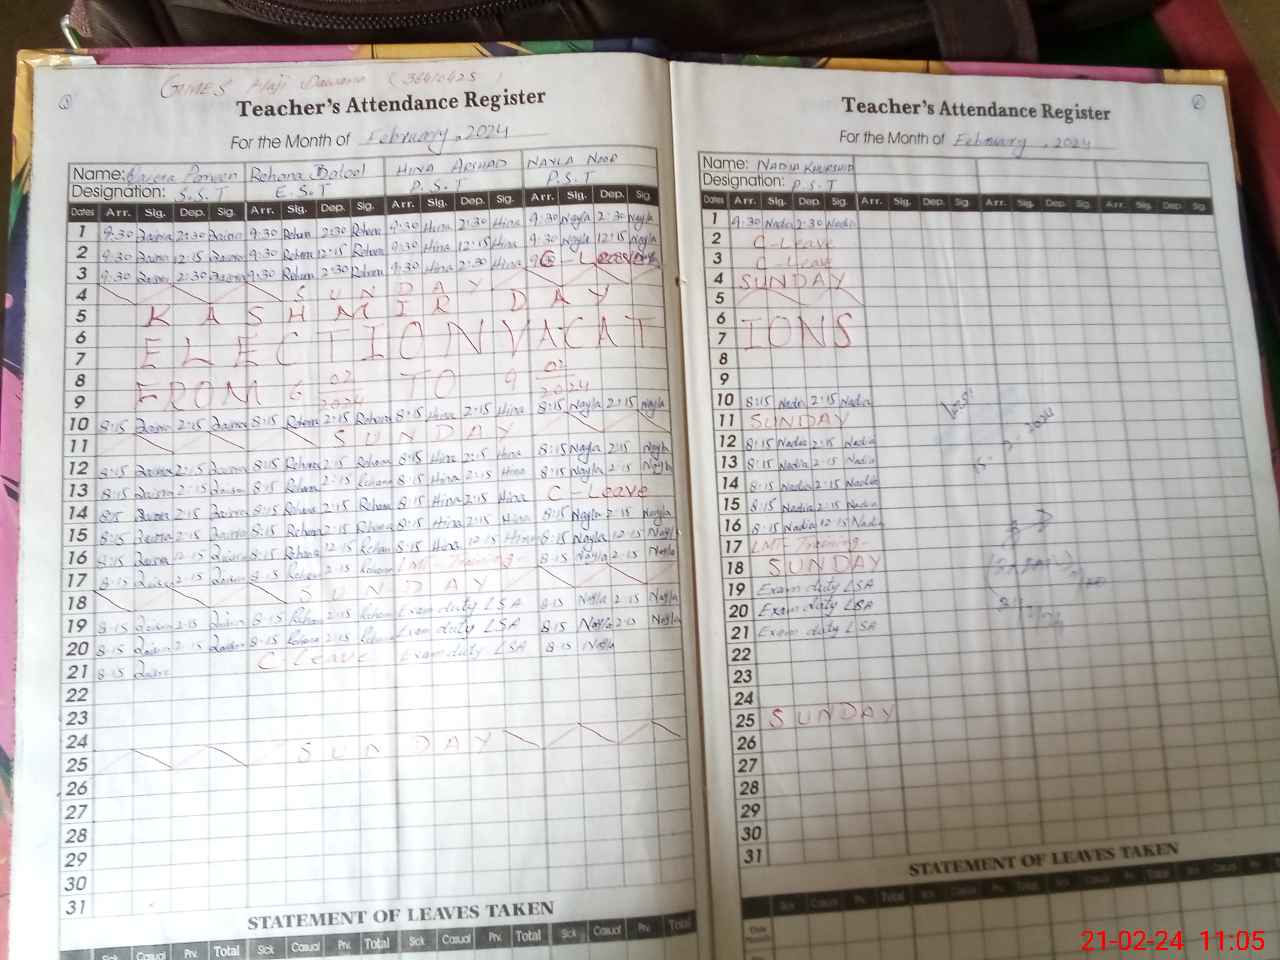 GMES Haji Dawana (38410425)
Teacher's Attendance Register
For the Month of February, 2024
Name: Parveen Rehana Batool HINA ARSHAD NAYLA NOOR
Designation: S.S.T E.S.T P.S.T P.S.T
Dates Arr. Sig. Dep. Sig. Arr. Sig. Dep. Sig. Arr. Sig. Dep. Sig. Arr. Sig. Dep. Sig.
1 9:30 2:30 9:30 Rehana 2:30 Rehana 9:30 Hina 2:30 Hina 9:30 Nayla 2:30 Nayla
2 9:30 12:15 9:30 Rehana 12:15 Rehana 9:30 Hina 12:15 Hina 9:30 Nayla 12:15 Nayla
3 9:30 2:30 9:30 Rehana 2:30 Rehana 9:30 Hina 2:30 Hina C-Leave
4 SUNDAY
5 KASHMIR DAY
6
7 ELECTION VACAT
8
9 FROM 6 02 2024 TO 9 02 2024
10 8:15 2:15 8:15 Rehana 2:15 Rehana 8:15 Hina 2:15 Hina 8:15 Nayla 2:15 Nayla
11 SUNDAY
12 8:15 2:15 8:15 Rehana 2:15 Rehana 8:15 Hina 2:15 Hina 8:15 Nayla 2:15 Nayla
13 8:15 2:15 8:15 Rehana 2:15 Rehana 8:15 Hina 2:15 Hina 8:15 Nayla 2:15 Nayla
14 8:15 2:15 8:15 Rehana 2:15 Rehana 8:15 Hina 2:15 Hina C-Leave
15 8:15 2:15 8:15 Rehana 2:15 Rehana 8:15 Hina 2:15 Hina 8:15 Nayla 2:15 Nayla
16 8:15 12:15 8:15 Rehana 12:15 Rehana 8:15 Hina 12:15 Hina 8:15 Nayla 12:15 Nayla
17 8:15 2:15 8:15 Rehana 2:15 Rehana LMT-Training- 8:15 Nayla 2:15 Nayla
18 SUNDAY
19 8:15 2:15 8:15 Rehana 2:15 Rehana Exam duty LSA 8:15 Nayla 2:15 Nayla
20 8:15 2:15 8:15 Rehana 2:15 Rehana Exam duty LSA 8:15 Nayla 2:15 Nayla
21 8:15 C-leave Exam duty LSA 8:15 Nayla
22
23
24
25 SUNDAY
26
27
28
29
30
31
STATEMENT OF LEAVES TAKEN
Sick Casual Prv. Total Sick Casual Prv. Total Sick Casual Prv. Total Sick Casual Prv. Total
Teacher's Attendance Register
For the Month of February, 2024
Name: NADIA KHURSHID
Designation: P.S.T
Dates Arr. Sig. Dep. Sig. Arr. Sig. Dep. Sig. Arr. Sig. Dep. Sig.
1 9:30 Nadia 2:30 Nadia
2 C-Leave
3 C-Leave
4 SUNDAY
5
6
7 IONS
8
9
10 8:15 Nadia 2:15 Nadia
11 SUNDAY
12 8:15 Nadia 2:15 Nadia
13 8:15 Nadia 2:15 Nadia
14 8:15 Nadia 2:15 Nadia
15 8:15 Nadia 2:15 Nadia
16 8:15 Nadia 12:15 Nadia
17 LMT-Training-
18 SUNDAY
19 Exam duty LSA
20 Exam duty LSA
21 Exam duty LSA
22
23
24
25 SUNDAY
26
27
28
29
30
31
STATEMENT OF LEAVES TAKEN
Sick Casual Prv. Total Sick Casual Prv. Total Sick Casual Prv. Total
21-02-24 11:05